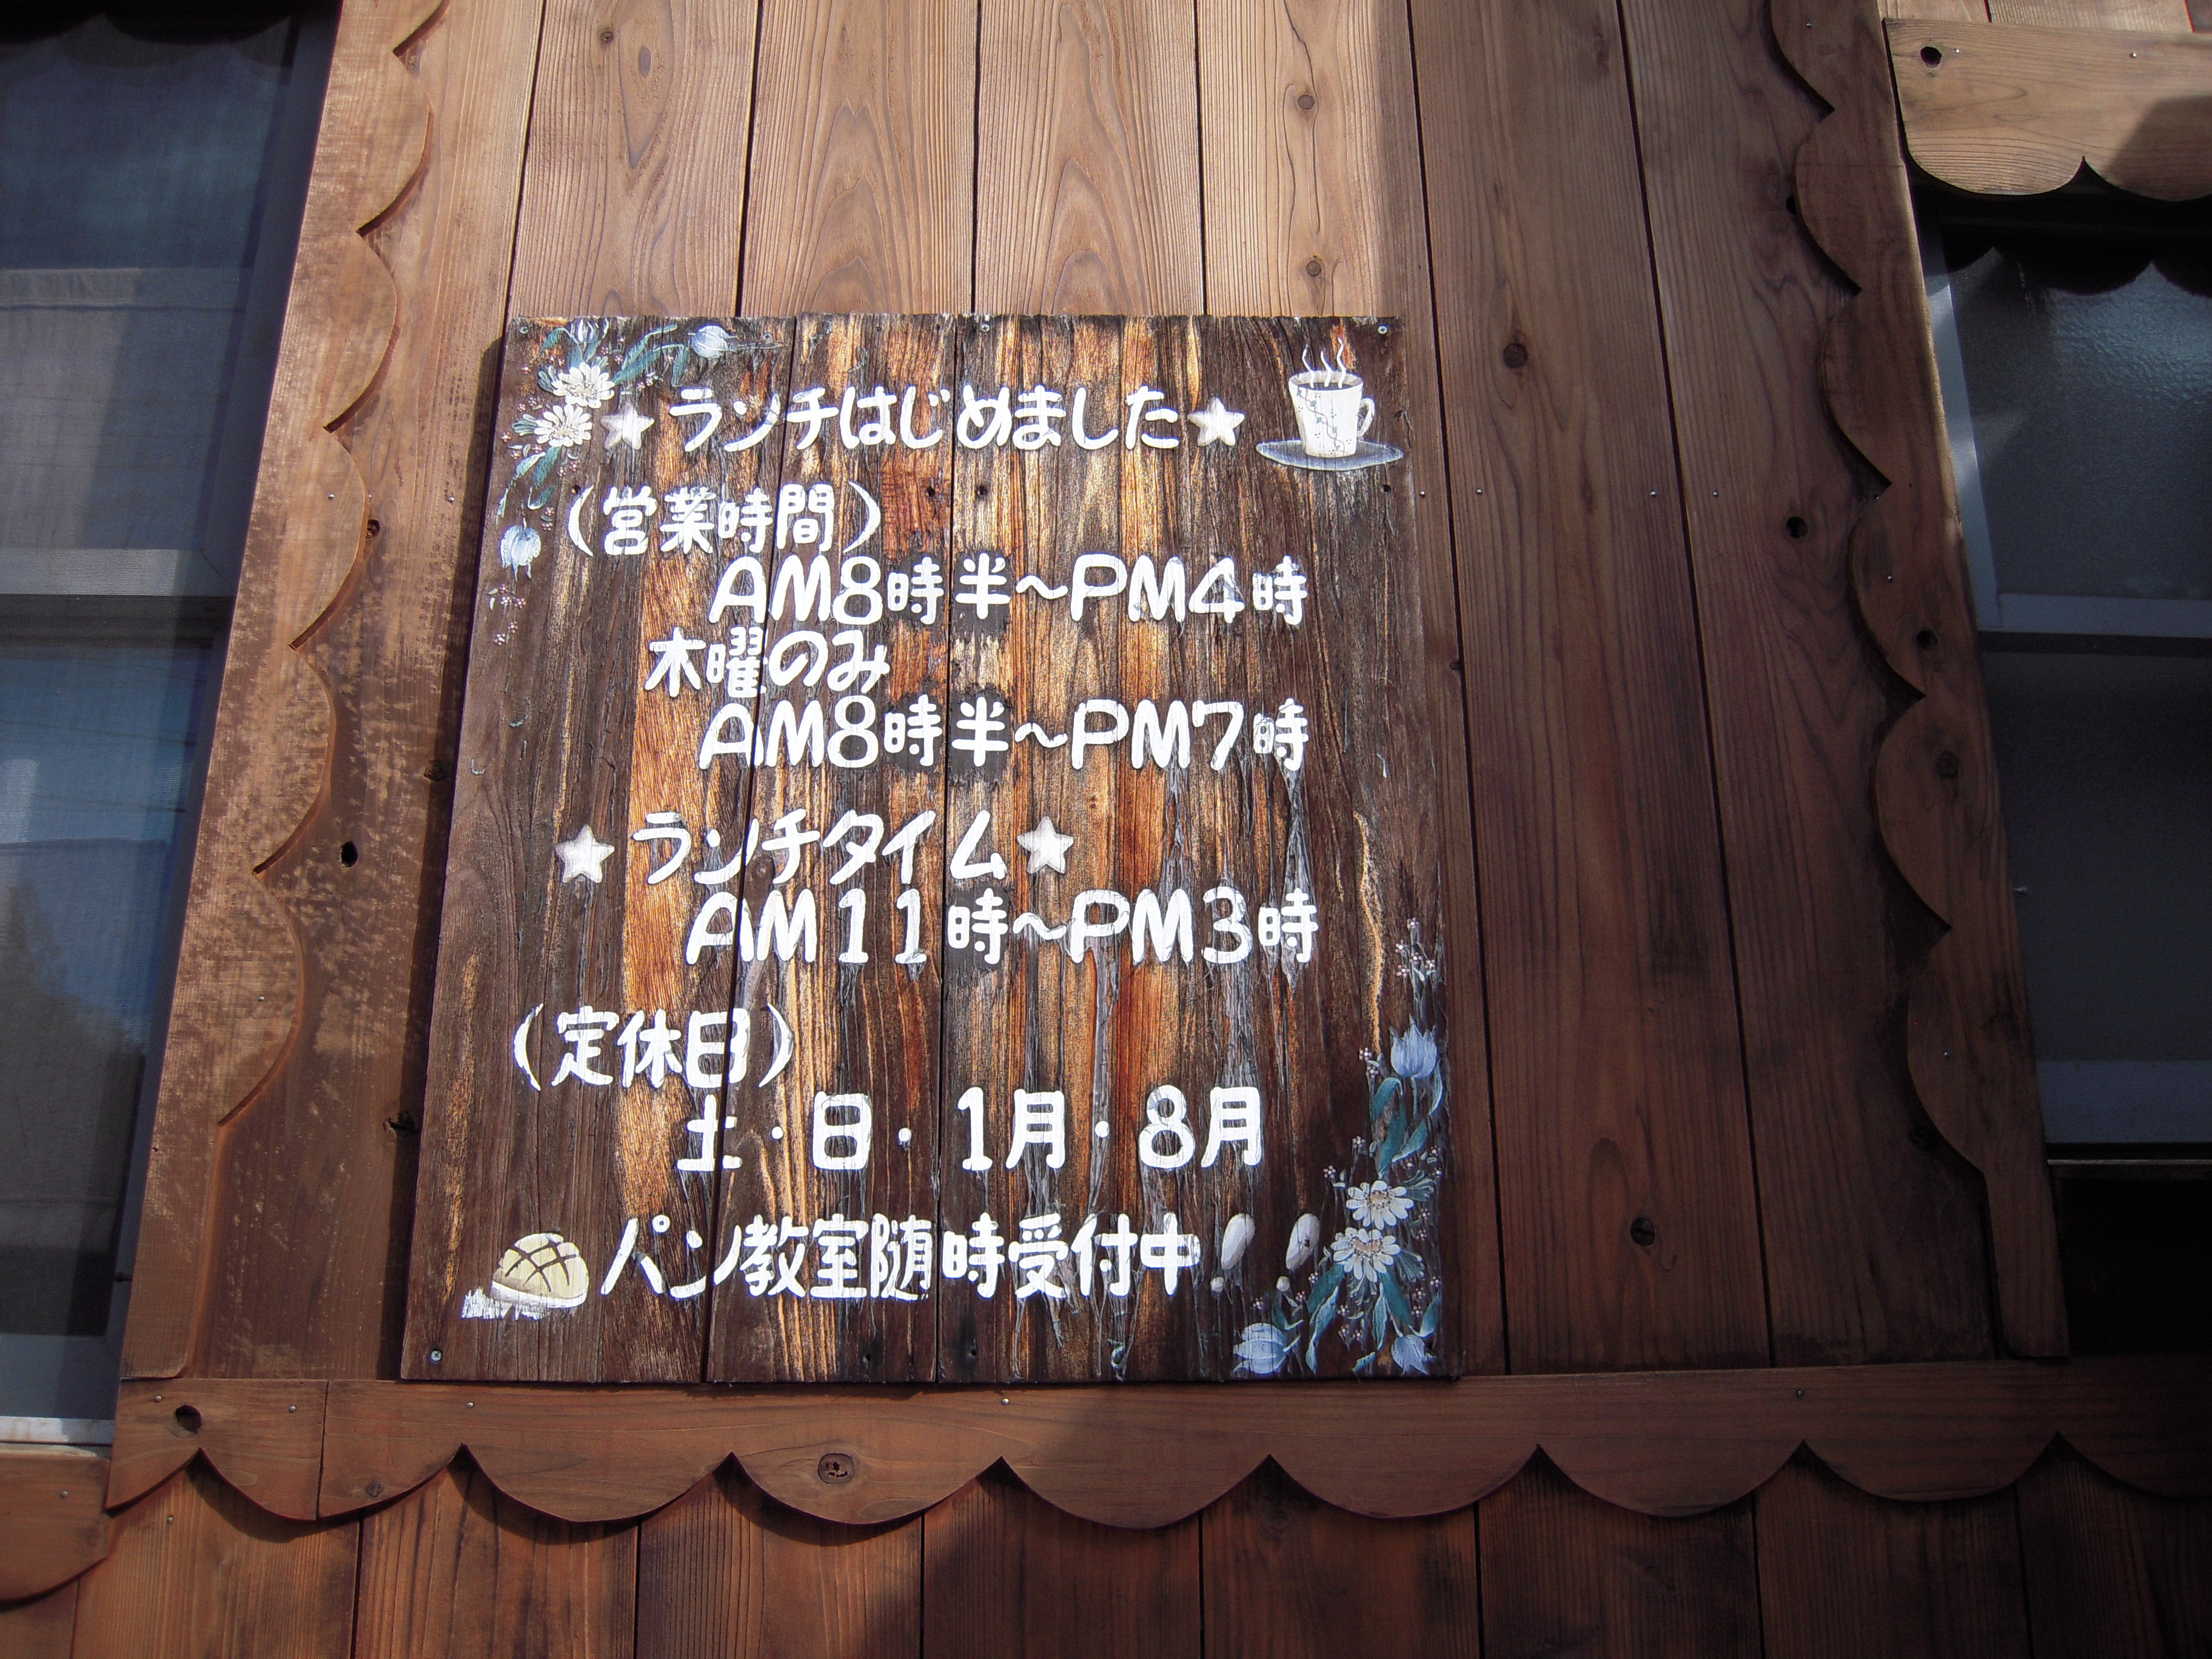 ★ランチはじめました★
(営業時間)
AM8時半~PM4時
木曜のみ
AM8時半~PM7時
★ランチタイム★
AM11時~PM3時
(定休日)
土・日・1月・8月
パン教室随時受付中!!